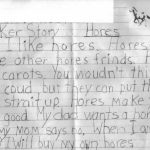 ker Story Hores
I like hores. Hores
e other hores frinds. T
carots. You wouldn't thin
coud, but they can put th
strait up. hores make
good. My dad wants a hor
my mom says no. When I am
I will buy my own hores